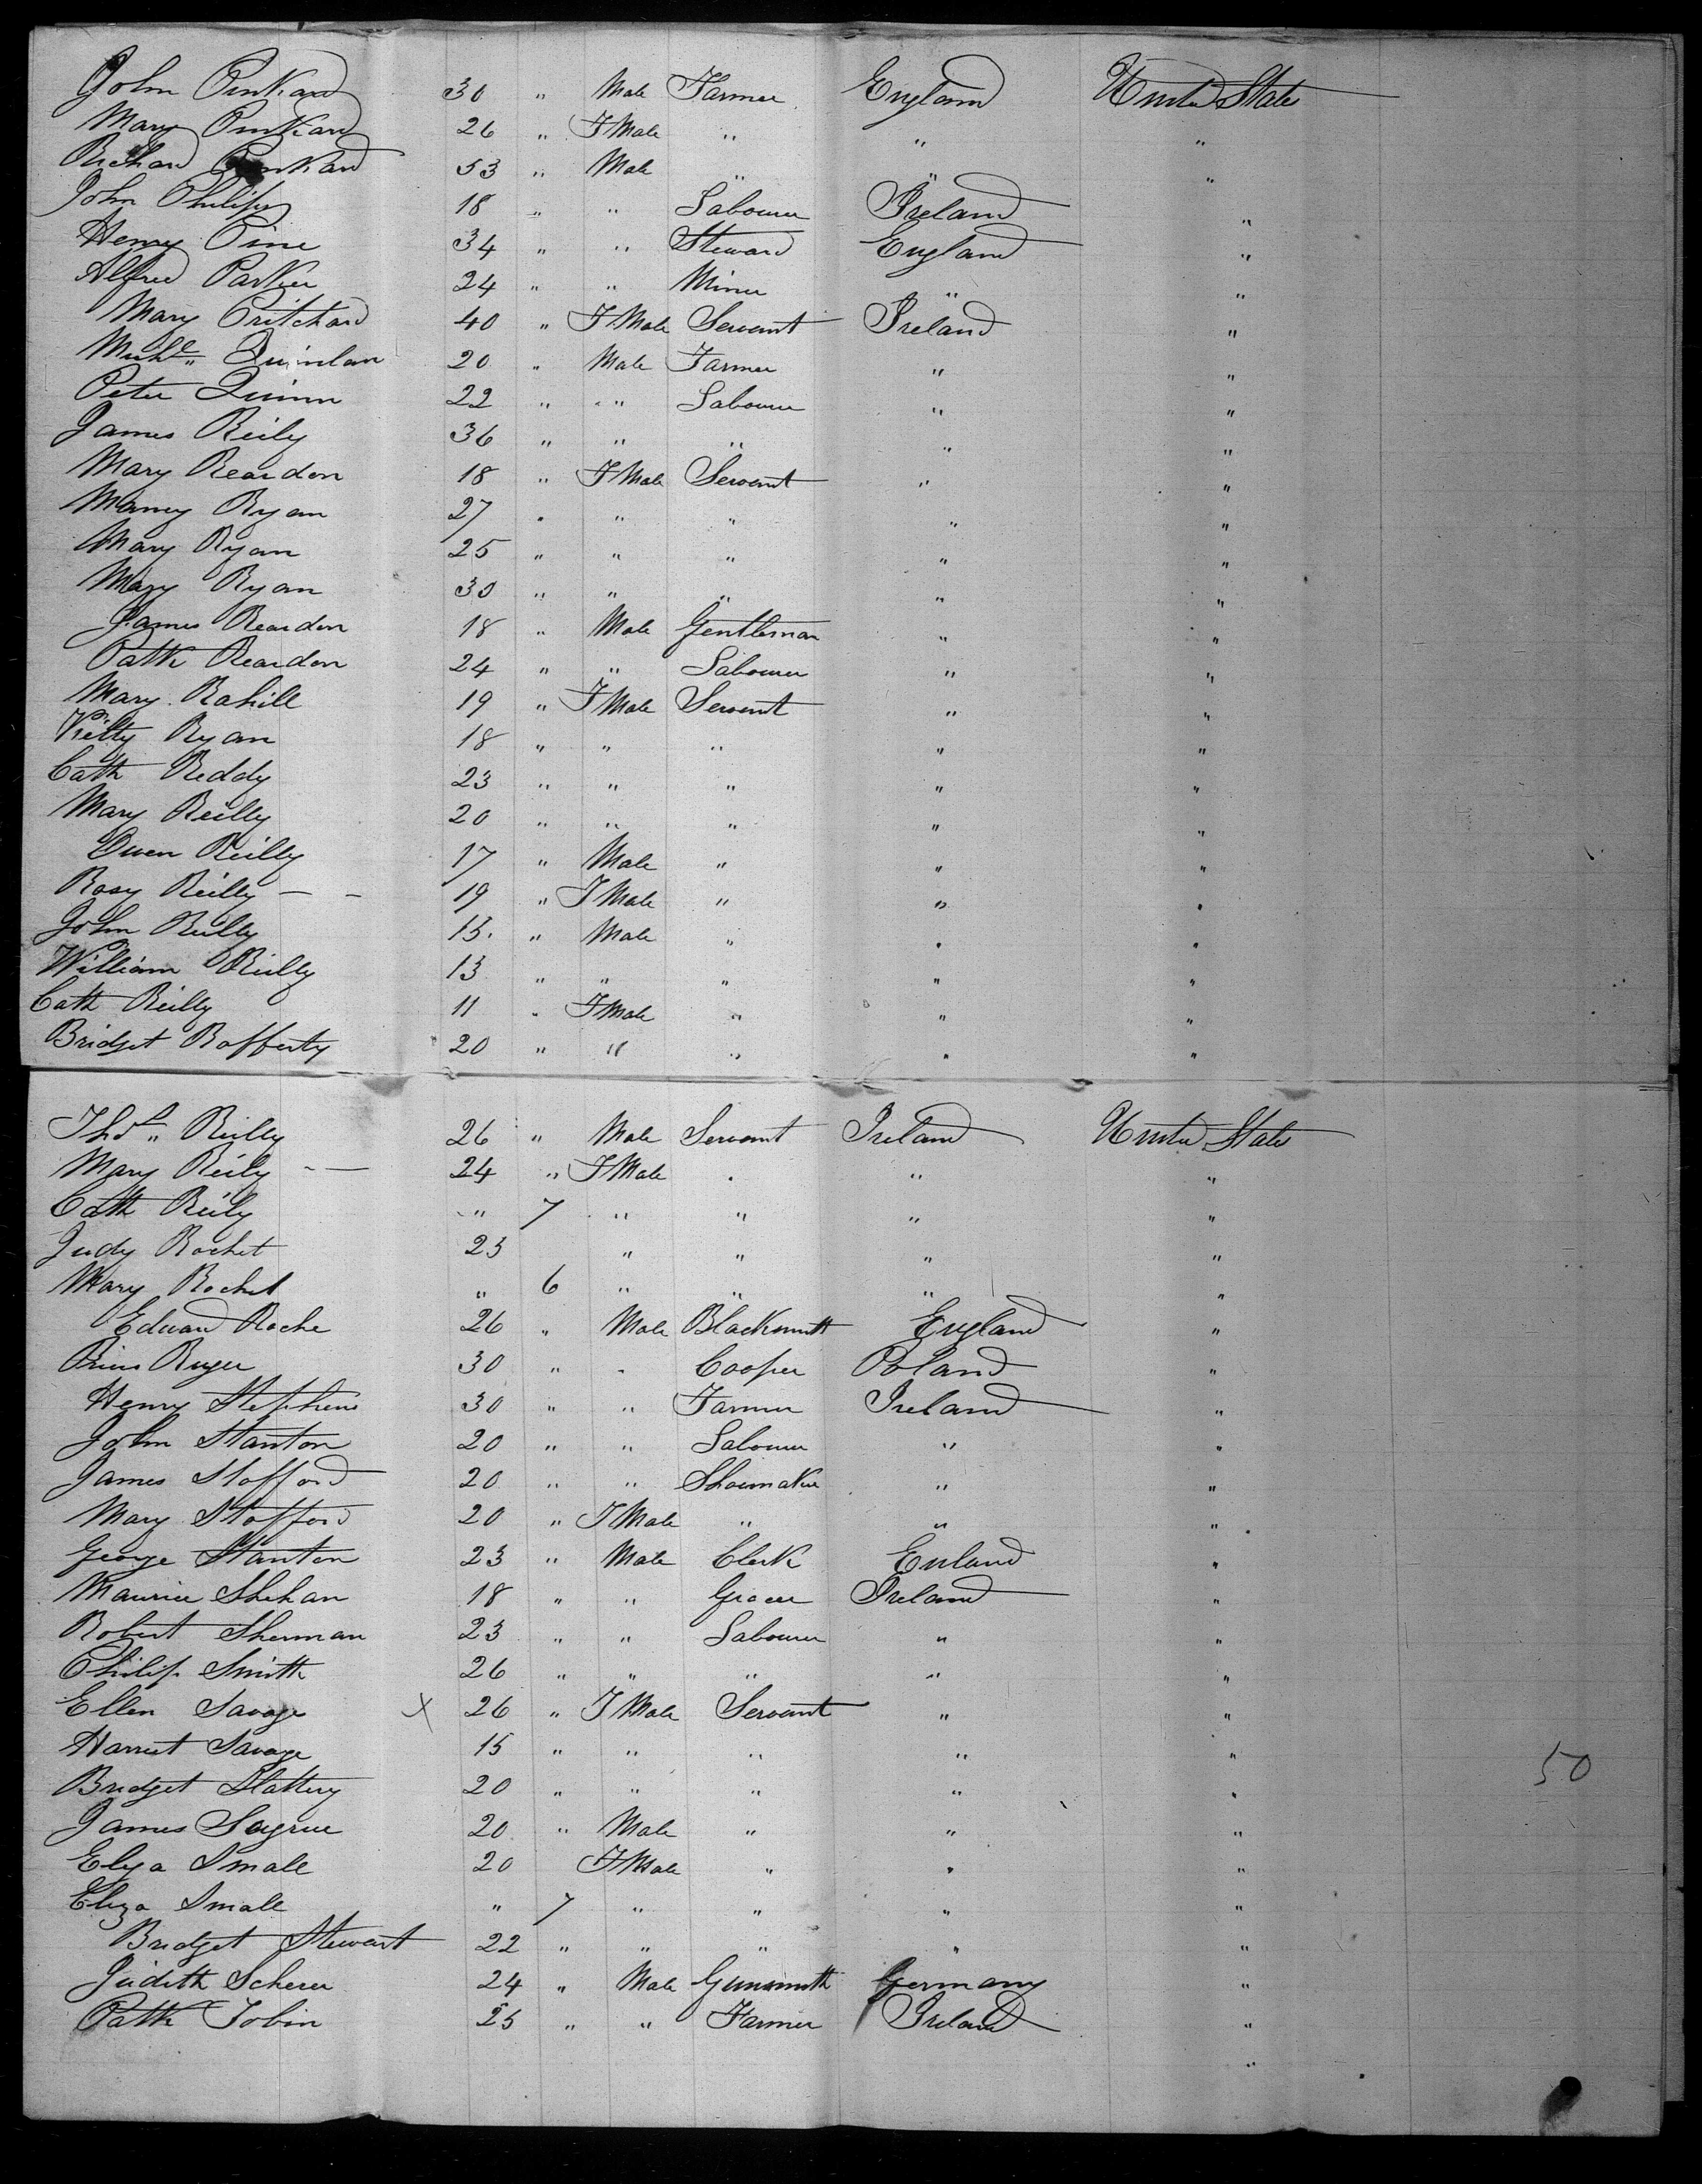 John Pinkard 30 " Male Farmer England United States
Mary Pinkard 26 " F Male " " "
Richard Pinkard 53 " Male " " "
John Philips 18 " " Labourer Ireland "
Henry Pine 34 " " Steward England "
Alfred Parker 24 " " Miner " "
Mary Pritchard 40 " F Male Servant Ireland "
Michl Quinlan 20 " Male Farmer " "
Peter Quinn 22 " " Labourer " "
James Reily 36 " " " " "
Mary Reardon 18 " F Male Servant " "
Mamey Ryan 27 " " " " "
Mary Ryan 25 " " " " "
Mary Ryan 30 " " " " "
James Reardon 18 " Male Gentleman " "
Patk Reardon 24 " " Labourer " "
Mary Rahill 19 " F Male Servant " "
Kitty Ryan 18 " " " " "
Cath Reddy 23 " " " " "
Mary Reilly 20 " " " " "
Owen Reilly 17 " Male " " "
Rosy Reilly 19 " F Male " " "
John Reilly 15 " Male " " "
William Reilly 13 " " " " "
Cath Reilly 11 " F Male " " "
Bridget Rafferty 20 " " " " "
Thos Reilly 26 " Male Servant Ireland United States
Mary Reily 24 " F Male " " "
Cath Reily " 7 " " " "
Judy Rochet 25 " " " "
Mary Rochet " 6 " " " "
Edward Roche 26 " Male Blacksmith England "
Ruger 30 " " Cooper Poland "
Henry Stephens 30 " " Farmer Ireland "
John Stanton 20 " " Labourer " "
James Stafford 20 " " Shoemaker " "
Mary Stafford 20 " F Male " " "
George Stanton 23 " Male Clerk Enland "
Maurice Shehan 18 " " Grocer Ireland "
Robert Sherman 23 " " Labourer " "
Philip Smith 26 " " " " "
Ellen Savage X 26 " F Male Servant " "
Harriet Savage 15 " " " " "
50
Bridget Slattery 20 " " " " "
James Sugrue 20 " Male " " "
Elyza Small 20 F Male " " "
Eliza Small " 7 " " " "
Bridget Stewart 22 " " " " "
Judith Scherer 24 " Male Gunsmith Germany "
Patk Tobin 25 " " Farmer Ireland "
"